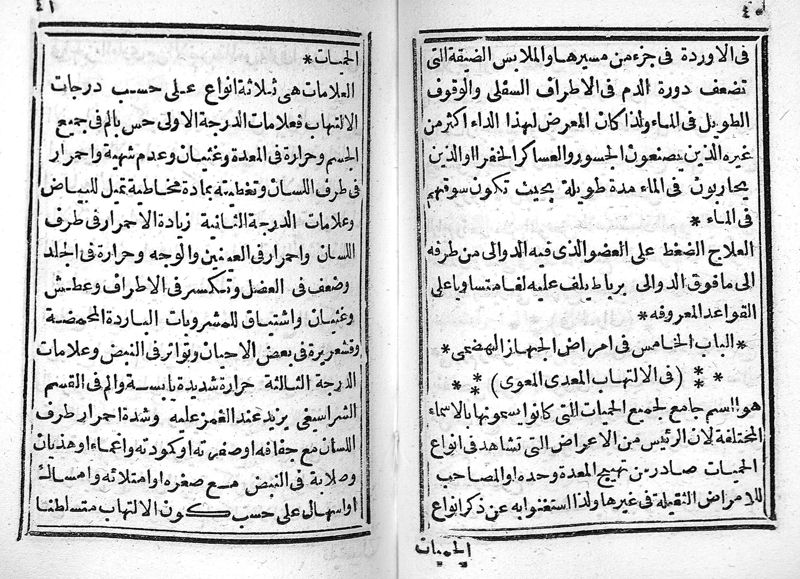 ٤٠
فى الاوردة فى جزء من مسيرها والملابس الضيقة التى
تضعف دورة الدم فى الاطراف السفلى والوقوف
الطويل فى الماء ولذا كان المعرض لهذا الداء اكثر من
غيره الذين يصنعون الجسور والعساكر الخفرا او الذين
يحاربون فى الماء مدة طويلة بحيث تكون سوقهم
فى الماء *
العلاج الضغط على العضو الذى فيه الدوالى من طرفه
الى ما فوق الدوالى برباط يلف عليه لفا متساويا على
القواعد المعروفه *
* الباب الخامس فى امراض الجهاز الهضمى *
* * (فى الالتهاب المعدى المعوى) * *
هو اسم جامع لجميع الحميات التى كانوا يسمونها بالاسماء
المختلفة لان الرئيس من الاعراض التى تشاهد فى انواع
الحميات صادر من تهيج المعدة وحده او المصاحب
للامراض الثقيلة فى غيرها ولذا استغنوا به عن ذكر انواع
الحميات
٤١
الحميات *
العلامات هى ثلاثة انواع على حسب درجات
الالتهاب فعلامات الدرجة الاولى حس بالم فى جميع
الجسم وحرارة فى المعدة وغثيان وعدم شهية واحمرار
فى طرف اللسان وتغطيته بمادة مخاطية تميل للبياض
وعلامات الدرجة الثانية زيادة الاحمرار فى طرف
اللسان واحمرار فى العينين والوجه وحرارة فى الجلد
وضعف فى العضل وتكسر فى الاطراف وعطش
وغثيان واشتياق للمشروبات الباردة المحمضة
وقشعريرة فى بعض الاحيان وتواتر فى النبض وعلامات
الدرجة الثالثة حرارة شديدة يابسة والم فى القسم
الشراسيفى يزيد عند الغمز عليه وشدة احمرار طرف
اللسان مع جفافه او صفرته او كمودته واغماء او هذيان
وصلابة فى النبض مع صغره او امتلائه وامساك
او اسهال على حسب كون الالتهاب متسلطنا